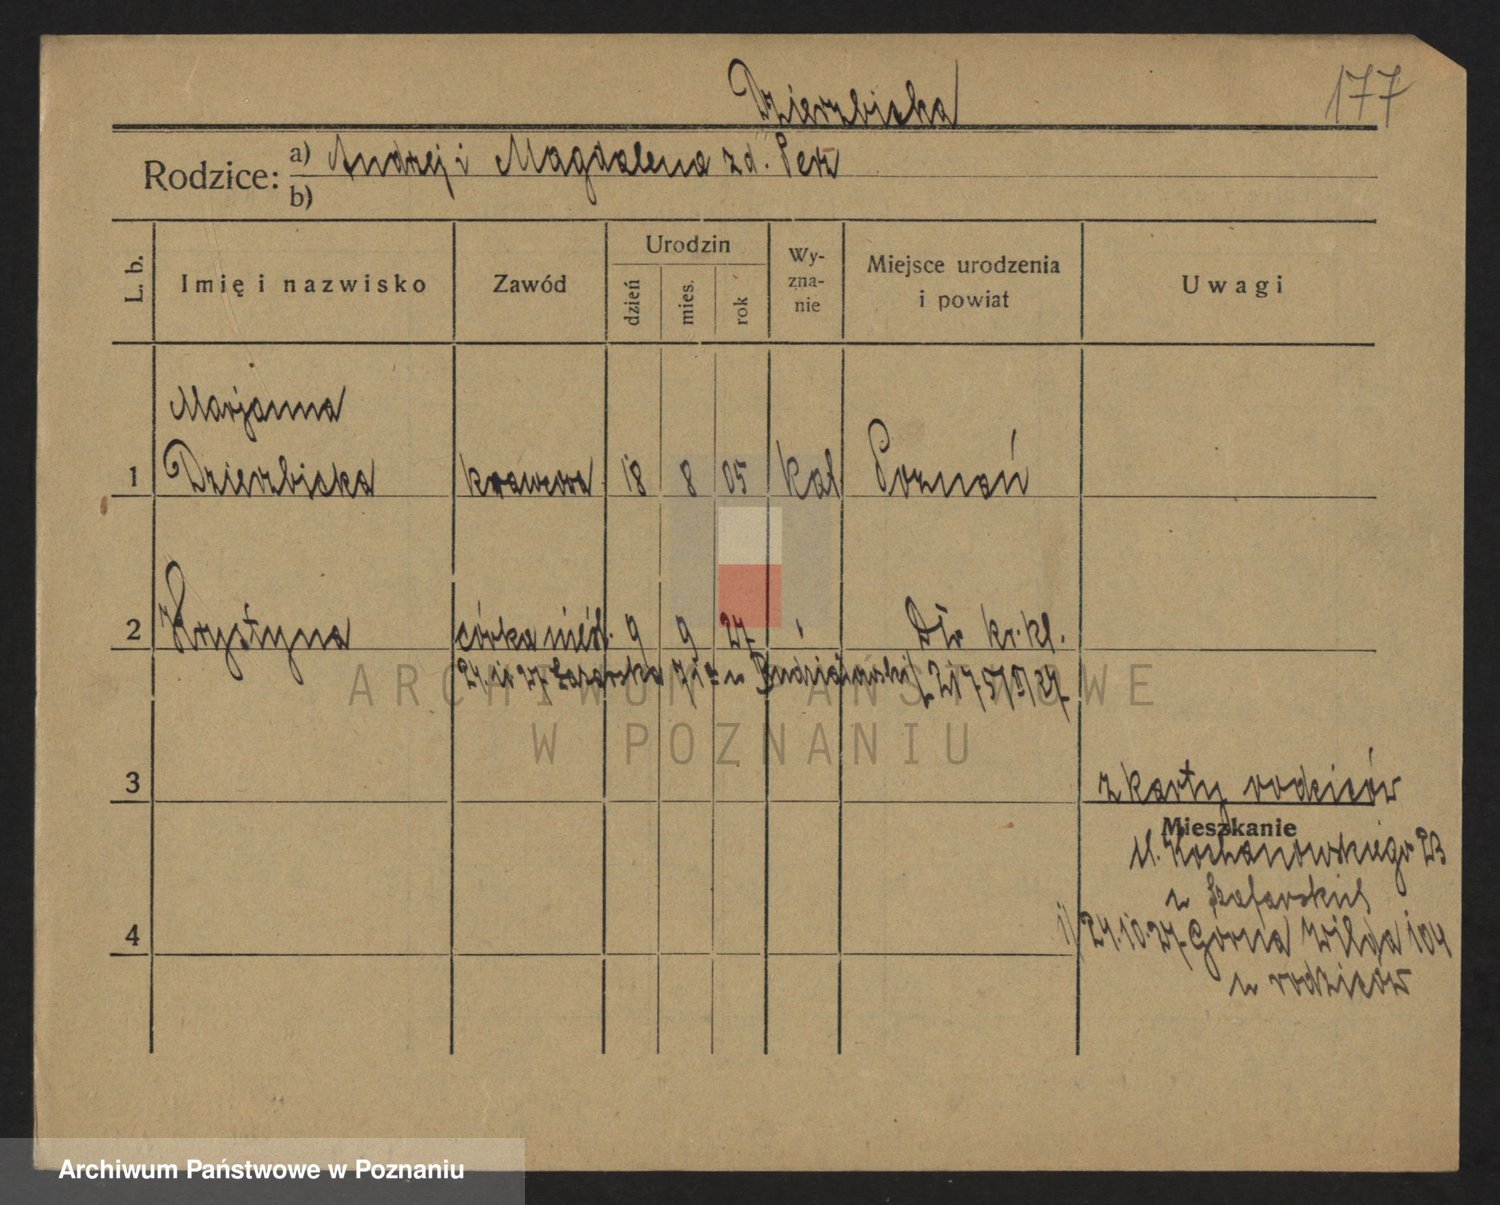 Dzierzbicka
177
Rodzice: a) Andrzej i Magdalena zd. Perz
b)
L. b. Imię i nazwisko Zawód Urodzin dzień mies. rok Wy-zna-nie Miejsce urodzenia i powiat Uwagi
Marjanna
1 Dzierzbicka krawcowa 18 8 05 kat Poznań
2 Krystyna córka nieśl. 9 9 27 Dtr kr. kl.
24.10.27 71 u
3 z karty rodziców
Mieszkanie
ul. Kochanowskiego 23
u Szafarskich
4 1) 24.10.27 Górna Wilda 104
u rodziców
ARCHIWUM PAŃSTWOWE
W POZNANIU
Archiwum Państwowe w Poznaniu